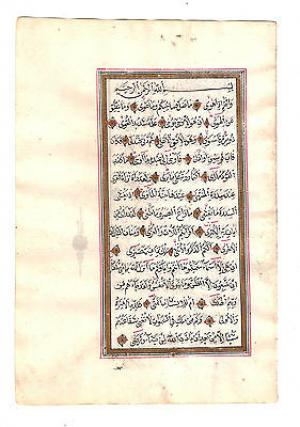 بسم الله الرحمن الرحيم
والنجم اذا هوى ما ضل صاحبكم وما غوى وما ينطق
عن الهوى ان هو الا وحى يوحى علمه شديد القوى
ذو مرة فاستوى وهو بالافق الاعلى ثم دنا فتدلى
فكان قاب قوسين او ادنى فاوحى الى عبده ما اوحى ما كذب
الفؤاد ما راى افتمارونه على ما يرى ولقد راه نزلة
اخرى عند سدرة المنتهى عندها جنة الماوى اذ يغشى
السدرة ما يغشى ما زاغ البصر وما طغى لقد راى
من ايات ربه الكبرى افرايتم اللات والعزى ومناة الثالثة
الاخرى الكم الذكر وله الانثى تلك اذا قسمة ضيزى
ان هى الا اسماء سميتموها انتم واباؤكم ما انزل الله بها من سلطان
ان يتبعون الا الظن وما تهوى الانفس ولقد جاءهم من
ربهم الهدى ام للانسان ما تمنى فلله الاخرة
والاولى وكم من ملك فى السموات لا تغنى شفاعتهم
شيئا الا من بعد ان ياذن الله لمن يشاء ويرضى